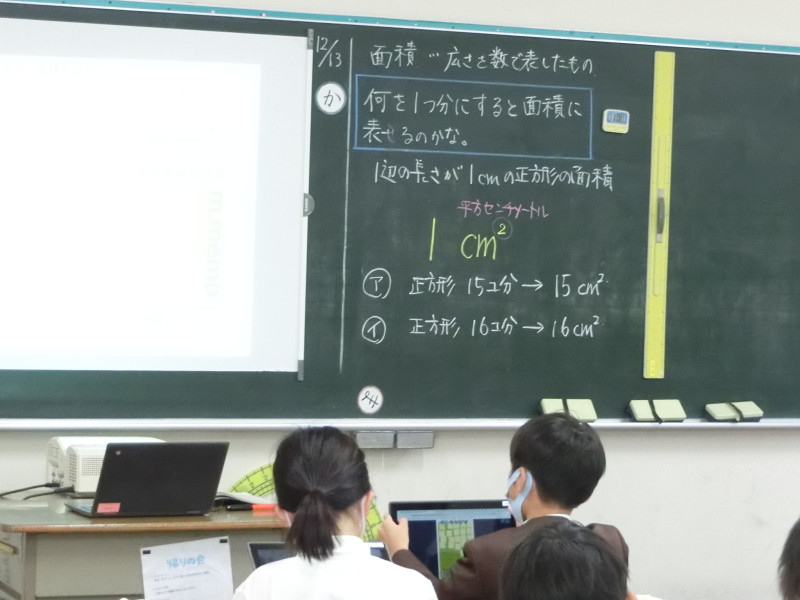 12/13
面積…広さを数で表したもの
か
何を1つ分にすると面積に
表せるのかな。
1辺の長さが1cmの正方形の面積
平方センチメートル
1 cm²
ア 正方形 15コ分→ 15cm²
イ 正方形 16コ分→ 16cm²
帰りの会